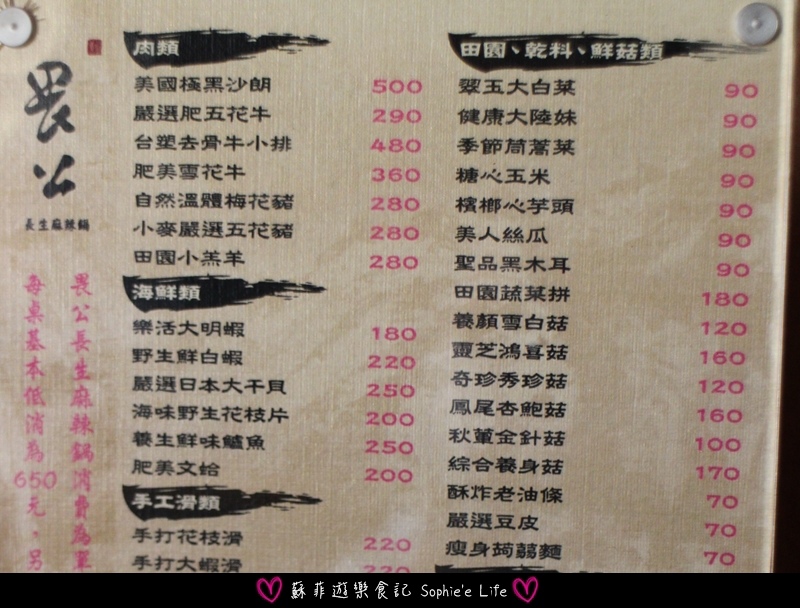 畏公
長生麻辣鍋
畏公長生麻辣鍋消費為單
每桌基本低消為650元、另
肉類
美國極黑沙朗 500
嚴選肥五花牛 290
台塑去骨牛小排 480
肥美雪花牛 360
自然溫體梅花豬 280
小麥嚴選五花豬 280
田園小羔羊 280
海鮮類
樂活大明蝦 180
野生鮮白蝦 220
嚴選日本大干貝 250
海味野生花枝片 200
養生鮮味鱸魚 250
肥美文蛤 200
手工滑類
手打花枝滑 220
手打大蝦滑 220
田園、乾料、鮮菇類
翠玉大白菜 90
健康大陸妹 90
季節茼蒿菜 90
糖心玉米 90
檳榔心芋頭 90
美人絲瓜 90
聖品黑木耳 90
田園蔬菜拼 180
養顏雪白菇 120
靈芝鴻喜菇 160
奇珍秀珍菇 120
鳳尾杏鮑菇 160
秋葷金針菇 100
綜合養身菇 170
酥炸老油條 70
嚴選豆皮 70
瘦身蒟蒻麵 70
蘇菲遊樂食記 Sophie'e Life